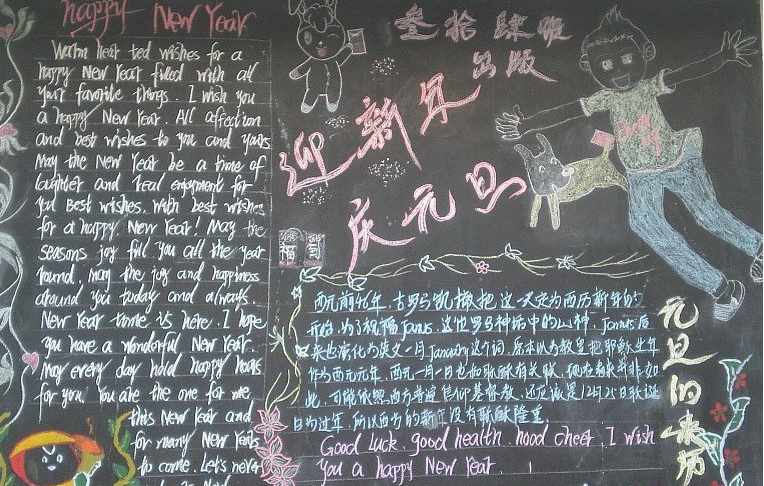 happy New Year
Warm hear ted wishes for a
happy New Year filled with all
your favorite things. I wish you
a happy New Year. All affection
and best wishes to you and yours
May the New Year be a time of
laughter and real enjoyment for
you Best wishes. With best wishes
for a happy New Year! May the
seasons joy fill you all the year
round. may the joy and happiness
around you today and always.
New Year time is here. I hope
you have a wonderful New Year.
May every day hold happy hours
for you. You are the one for me
this New Year and
for many New Years
to come. Let's never
叁拾肆班
出版
迎新年
庆元旦
福 到
西元前46年,古罗马凯撒把这一天定为西历新年的
开始,为了祝福Janus,这位罗马神话中的 神,Janus后
来也演化为英文一月January这个词,原本以为教皇把耶稣生年
作为西元元年,西元一月一日也和耶稣有关联,现在看来并非如
此,可能依照西方普遍信仰基督教,还应该是12月25日耶诞
日为过年,所以西方的新年没有耶稣隆重
Good luck, good health, hood cheer. I wish
you a happy New Year.
元旦的来历